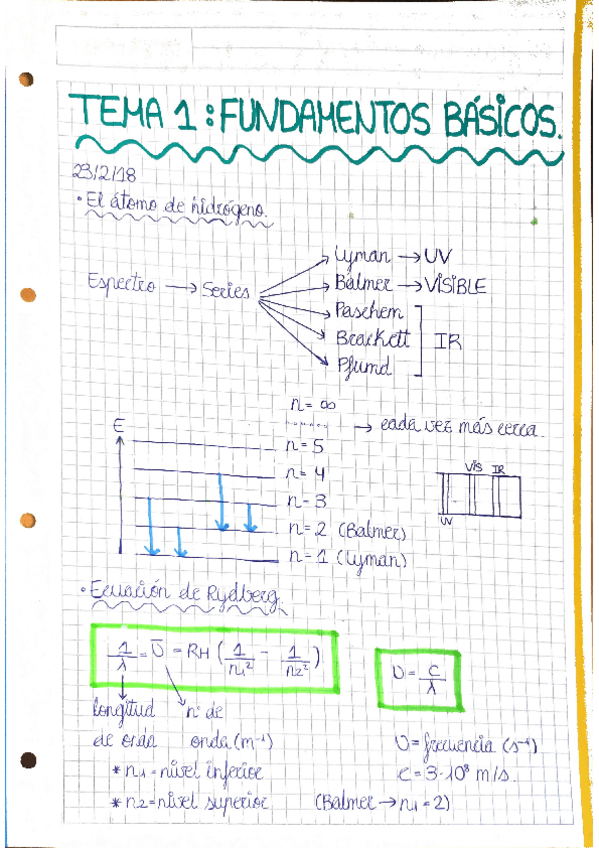 TEMA 1: FUNDAMENTOS BÁSICOS.
23/2/18
· El átomo de hidrógeno.
Espectro → Series
Lyman → UV
Balmer → VISIBLE
Paschem
Brackett
Pfumd
IR
n = ∞
→ cada vez más cerca.
E
n = 5
n = 4
n = 3
n = 2 (Balmer)
n = 1 (Lyman)
VIS IR
UV
· Ecuación de Rydberg.
1/λ = Ū = RH (1/n₁² - 1/n₂²)
υ = c/λ
longitud de onda
nº de onda (m⁻¹)
υ = frecuencia (s⁻¹)
* n₁ = nivel inferior
c = 3·10⁸ m/s.
* n₂ = nivel superior (Balmer → n₁ = 2)